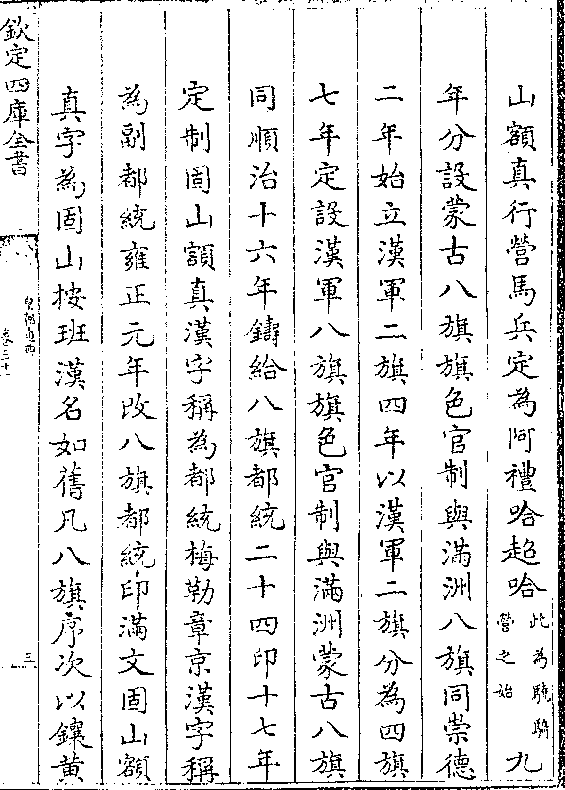 山額真行營馬兵定為阿禮哈超哈此為驍騎營之始九
年分設蒙古八旗旗色官制與滿洲八旗同崇德
二年始立漢軍二旗四年以漢軍二旗分為四旗
七年定設漢軍八旗旗色官制與滿洲蒙古八旗
同順治十六年鑄給八旗都統二十四印十七年
定制固山額真漢字稱為都統梅勒章京漢字稱
為副都統雍正元年改八旗都統印滿文固山額
真字為固山按班漢名如舊凡八旗序次以鑲黃
欽定四庫全書
三